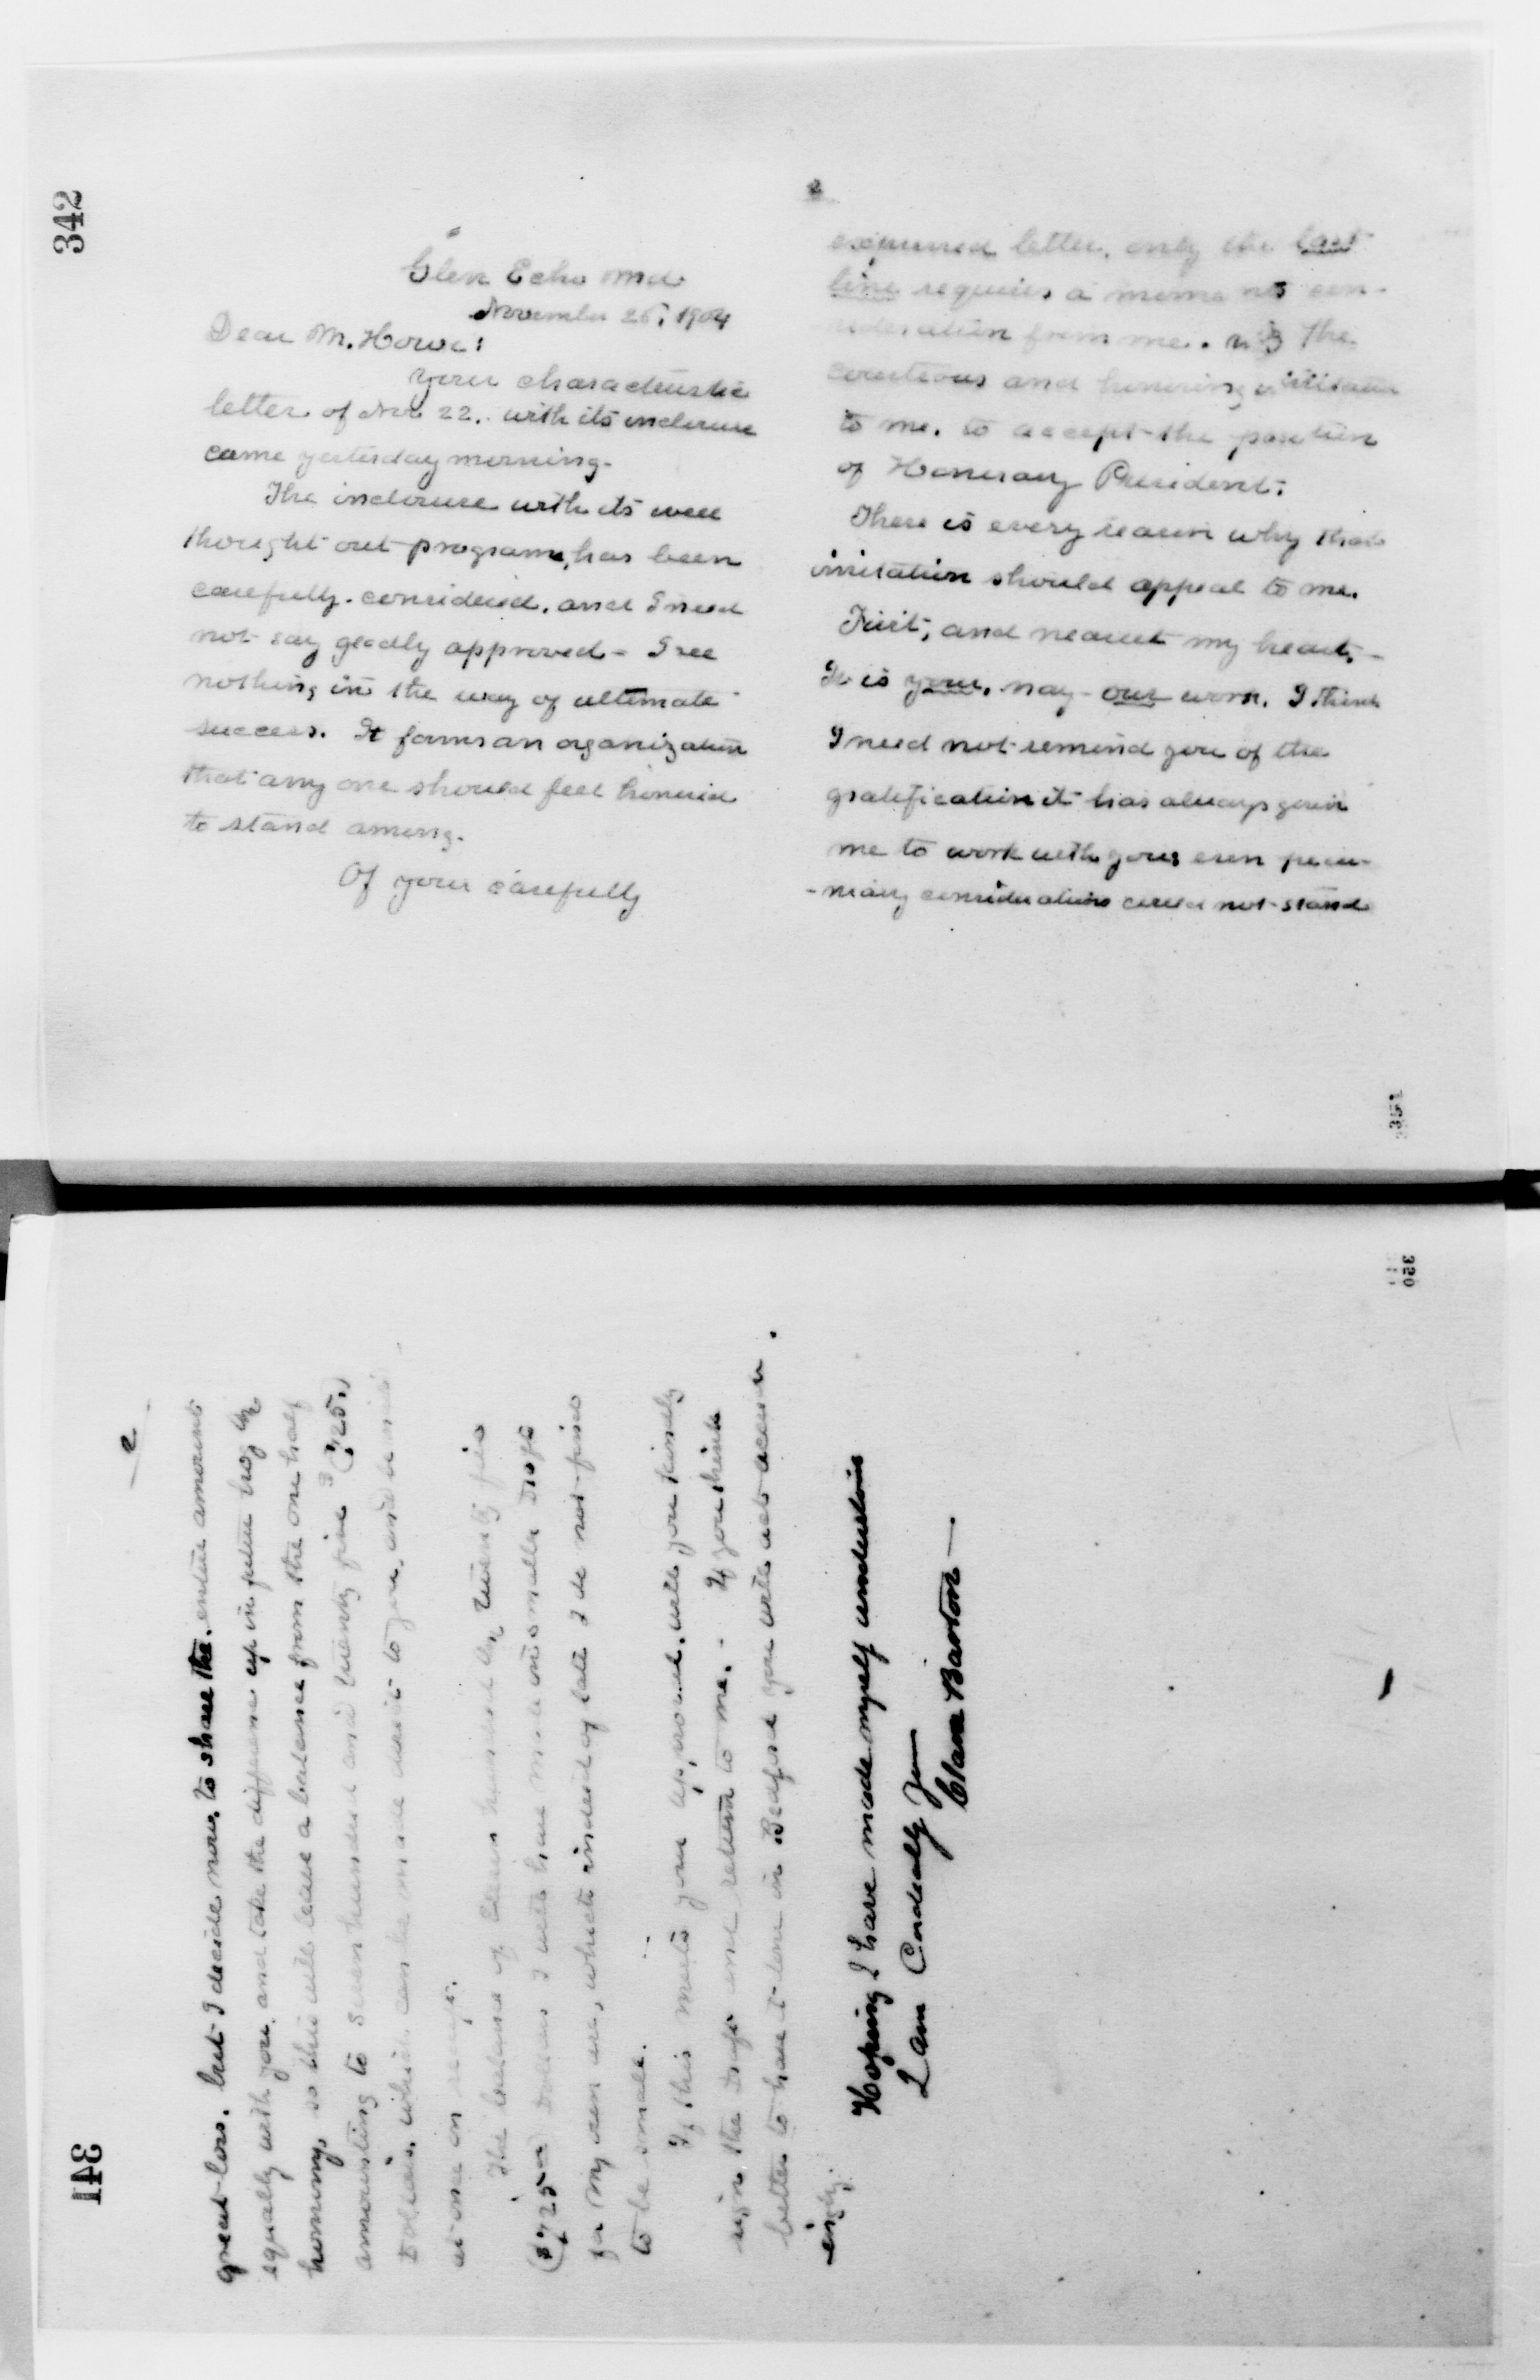 342
Glen Echo Md
November 26, 1904
Dear Mr. Howe:
Your characteristic
letter of Nov 22. with its inclosure
came yesterday morning.
The inclosure with its well
thought out programe, has been
carefully considered, and I need
not say gladly approved - I see
nothing in the way of ultimate
success. It forms an organization
that any one should feel honored
to stand among.
Of your carefully
2
letter, only the last
line requires a moments con-
sideration from me. viz The
courteous and honoring invitation
to me, to accept the position
of Honorary President.
There is every reason why that
invitation should appeal to me.
First, and nearest my heart, -
It is your, nay - our work. I think
I need not remind you of the
gratification it has always given
me to work with you, even pecu-
-niary considerations could not stand
351
350
341
2
great loss. but I decide now, to share the entire amount
equally with you, and take the difference up in future
so this will leave a balance from the one half
amounting to seven hundred and twenty five ($725.)
Dollars, which can be made to you, and
at once on
The balance of hundred twenty five
($725) Dollars I will have made
for my own use, which instead of late I do not find
to be small.
If this meets your approval, will you kindly
sign the Draft and return to me. - If you think
better to have it done in Bedford you will act accord-
ingly.
Hoping I have made myself understood
I am Cordially Yours
Clara Barton -